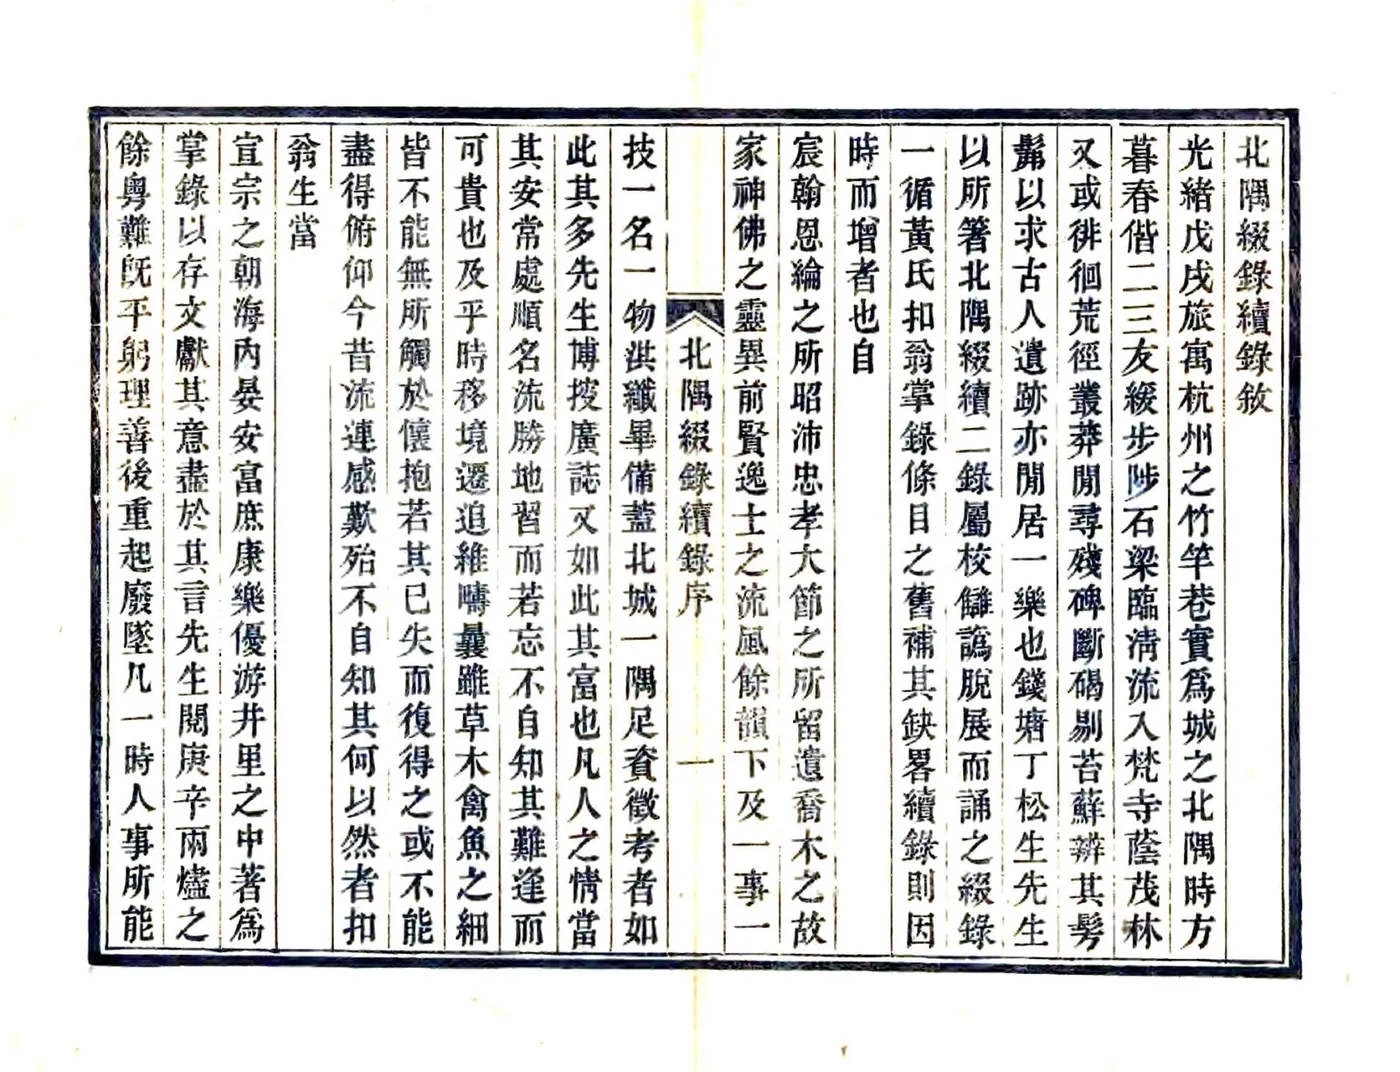 北隅綴錄續錄敘
光緒戊戌旅寓杭州之竹竿巷實爲城之北隅時方
暮春偕二三友緩步陟石梁臨淸流入梵寺蔭茂林
又或徘徊荒徑叢莽閒尋殘碑斷碣剔苔蘚辨其髣
髴以求古人遺跡亦閒居一樂也錢塘丁松生先生
以所箸北隅綴續二錄屬校讎譌脫展而誦之綴錄
一循黃氏扣翁掌錄條目之舊補其缺畧續錄則因
時而增者也自
宸翰恩綸之所昭沛忠孝大節之所留遺喬木之故
家神佛之靈異前賢逸士之流風餘韻下及一事一
北隅綴錄續錄序
一
技一名一物洪纖畢備蓋北城一隅足資徵考者如
此其多先生博搜廣誌又如此其富也凡人之情當
其安常處順名流勝地習而若忘不自知其難逢而
可貴也及乎時移境遷追維疇曩雖草木禽魚之細
皆不能無所觸於懷抱若其已失而復得之或不能
盡得俯仰今昔流連感歎殆不自知其何以然者扣
翁生當
宣宗之朝海內晏安富庶康樂優游井里之中著爲
掌錄以存文獻其意盡於其言先生閱庚辛兩燼之
餘粵難旣平躬理善後重起廢墜凡一時人事所能